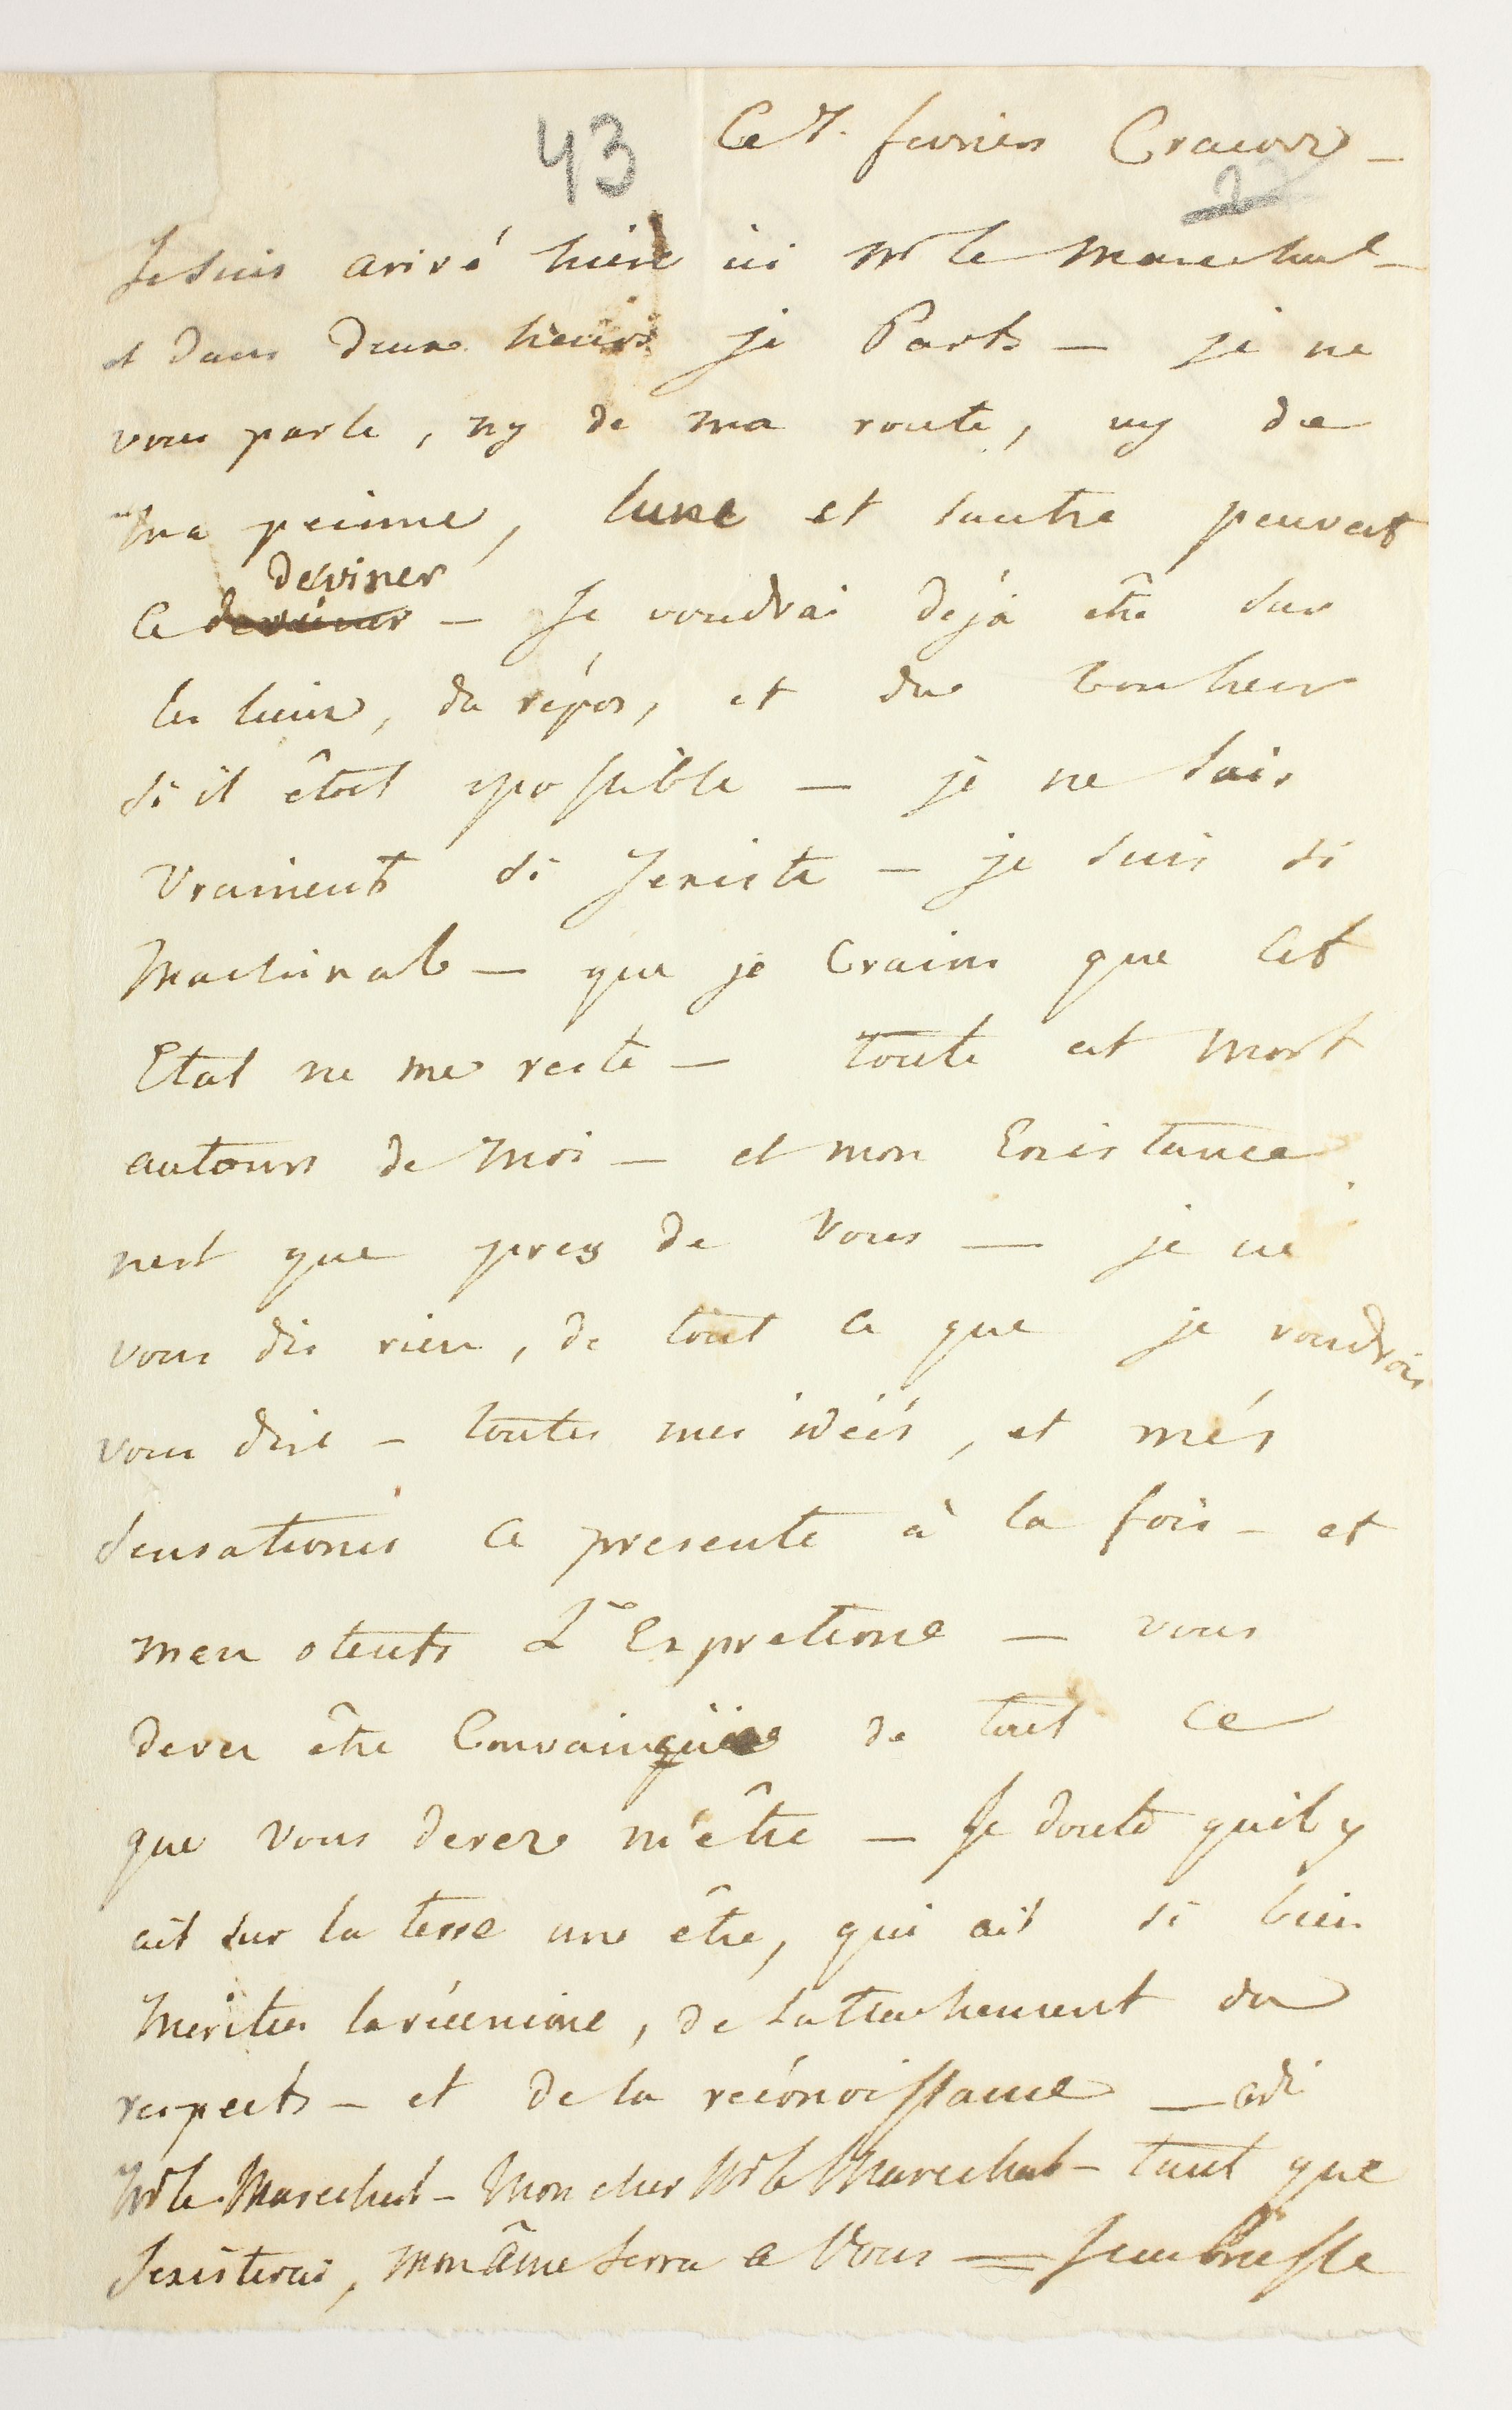 43
Ce 7. fevrier Cracovie —
2
Je suis arivé hière ici Mr le Marechal —
et dans deux heures je Parts — je ne
vous parle, ny de ma route, ny de
ma peinne, lune et lautre peuvent
deviner
ce — Je voudrai dejà être sur
les lieux, du répos, et du bonheur
si il êtoit possible — je ne sais
vraiment si Jexiste — je suis si
Machinale — que je Crains que cet
Etat ne me reste — toute est mort
autours de Moi — et mon Existance
nest que pres de Vous — je ne
vous dis rien, de tout ce que je voudrois
vous dire — toutes mes idéés, et més
sensationes ce presente à la fois — et
men otents L'Expretione — vous
devez être Convainquüe de tout ce
que vous devez m'être — Je doute quil y
ait sur la terre une être, qui ait si bien
Meritée la réeunione, de Lattachement du
respects — et de la reconoissance — adi
Mr le Marechal — Mon cher Mr le Marechal — tant que
Jexisterai, mon âme serra a Vous — Jembrasse